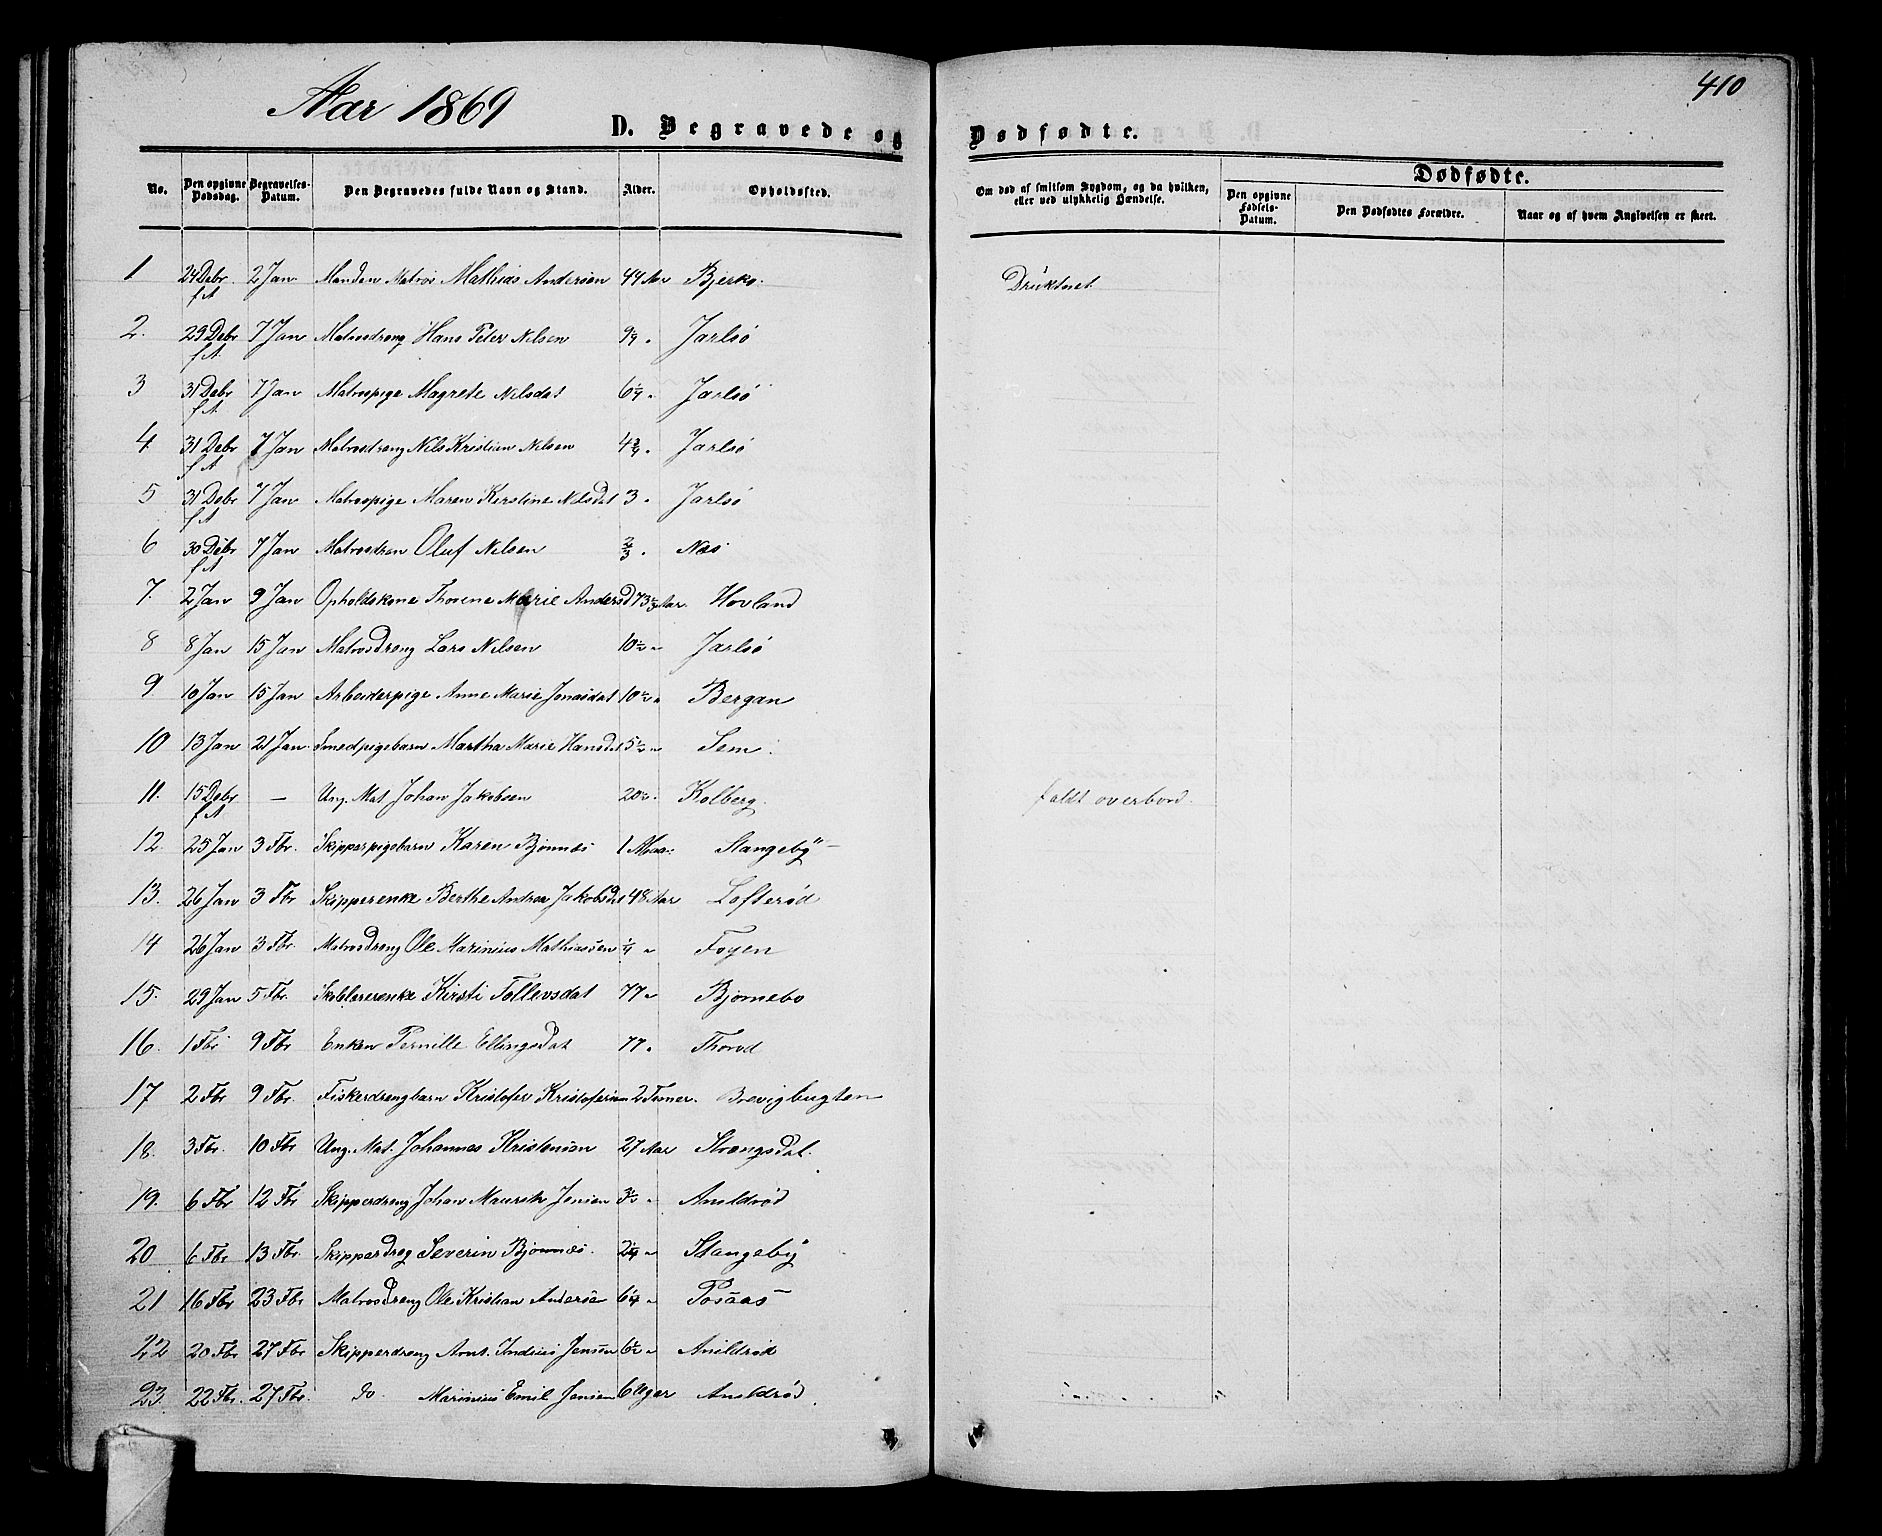 Aar 1869
410
D. Begravede og Dødfødte.
No. Den opgivne Dødsdag. Begravelses-Datum. Den Begravedes fulde Navn og Stand. Alder. Opholdssted. Om død af smitsom Sygdom, og da hvilken, eller ved ulykkelig Hændelse. Dødfødte. Den opgivne Fødsels-Datum. Den Dødfødtes Forældre. Naar og af hvem Angivelsen er skeet.
1 24 Debr f A 2 Jan Manden Matros Mathias Andersen 44 Aar Bjerkø. Druknet
2. 29 Debr f A 7 Jan Matrosdreng Hans Peter Nilsen Jarlsø
3 31 Debr f A 7 Jan Matrospige Magrete Nilsdat 6 1/4 " Jarlsø
4. 31 Debr f A 7 Jan Matrosdreng Nils Kristian Nilsen 4 3/4 " Jarlsø
5 31 Debr f A 7 Jan Matrospige Maren Kirstine Nilsdat 3 " Jarlsø
6 30 Debr f A 7 Jan Matrosdren Oluf Nilsen 2/3 " Næs
7. 2 Jan 9 Jan Opholdskone Thorine Marie Andersd 73 1/2 Aar. Hovland
8 8 Jan 15 Jan Matrosdreng Lars Nilsen 10 1/2 " Jarlsø
9 10 Jan 15 Jan Arbeiderpige Anne Marie Jonasdat 10 1/2 " Bergan
10 13 Jan 21 Jan Smedpigebarn Martha Marie Hansdat 5 1/2 " Sem
11. 15 Debr f A — Ung. Mat Johan Jakobsen 20 1/2 " Kolberg. faldt overbord.
12. 25 Jan 3 Fbr. Skipperpigebarn Karen Bjønnæs 1 Maa: Stangeby
13. 26 Jan 3 Fbr Skipperenke Berthe Andrea Jakobsdt 48 Aar Lofterød
14 26 Jan 3 Fbr. Matrosdreng Ole Marinius Mathiassen 1/4 " Foyen
15. 29 Jan 5 Fbr. Kirsti Tollevsdat 77 " Bjørnebo
16. 1 Fbr 9 Fbr Enken Pernille Ellingsdat 77 " Thorød
17 2 Fbr 9 Fbr. Fiskerdrengbarn Kristofer Kristofersen 2 Timer. Brevigbugten
18. 3 Fbr. 10 Fbr Ung. Mat. Johannes Kristensen 27 Aar Strengsdal.
19. 6 Fbr 12 Fbr Skipperdreng Johan Mauritz Jensen Arildrød
20 6 Fbr 13 Fbr. Skipperdreg Severin Bjønnæs. 2 1/4 " Stangeby
21 16 Fbr 23 Fbr Matrosdreng Ole Kristian Anderse 6 1/4 " Rosaas
22 20 Fbr 27 Fbr Skipperdreng Arnt. Jensen 6 1/2 " Arildrød
23. 22 Fbr. 27 Fbr. Do. Marinius Emil Jensen 6 Uger Arildrød